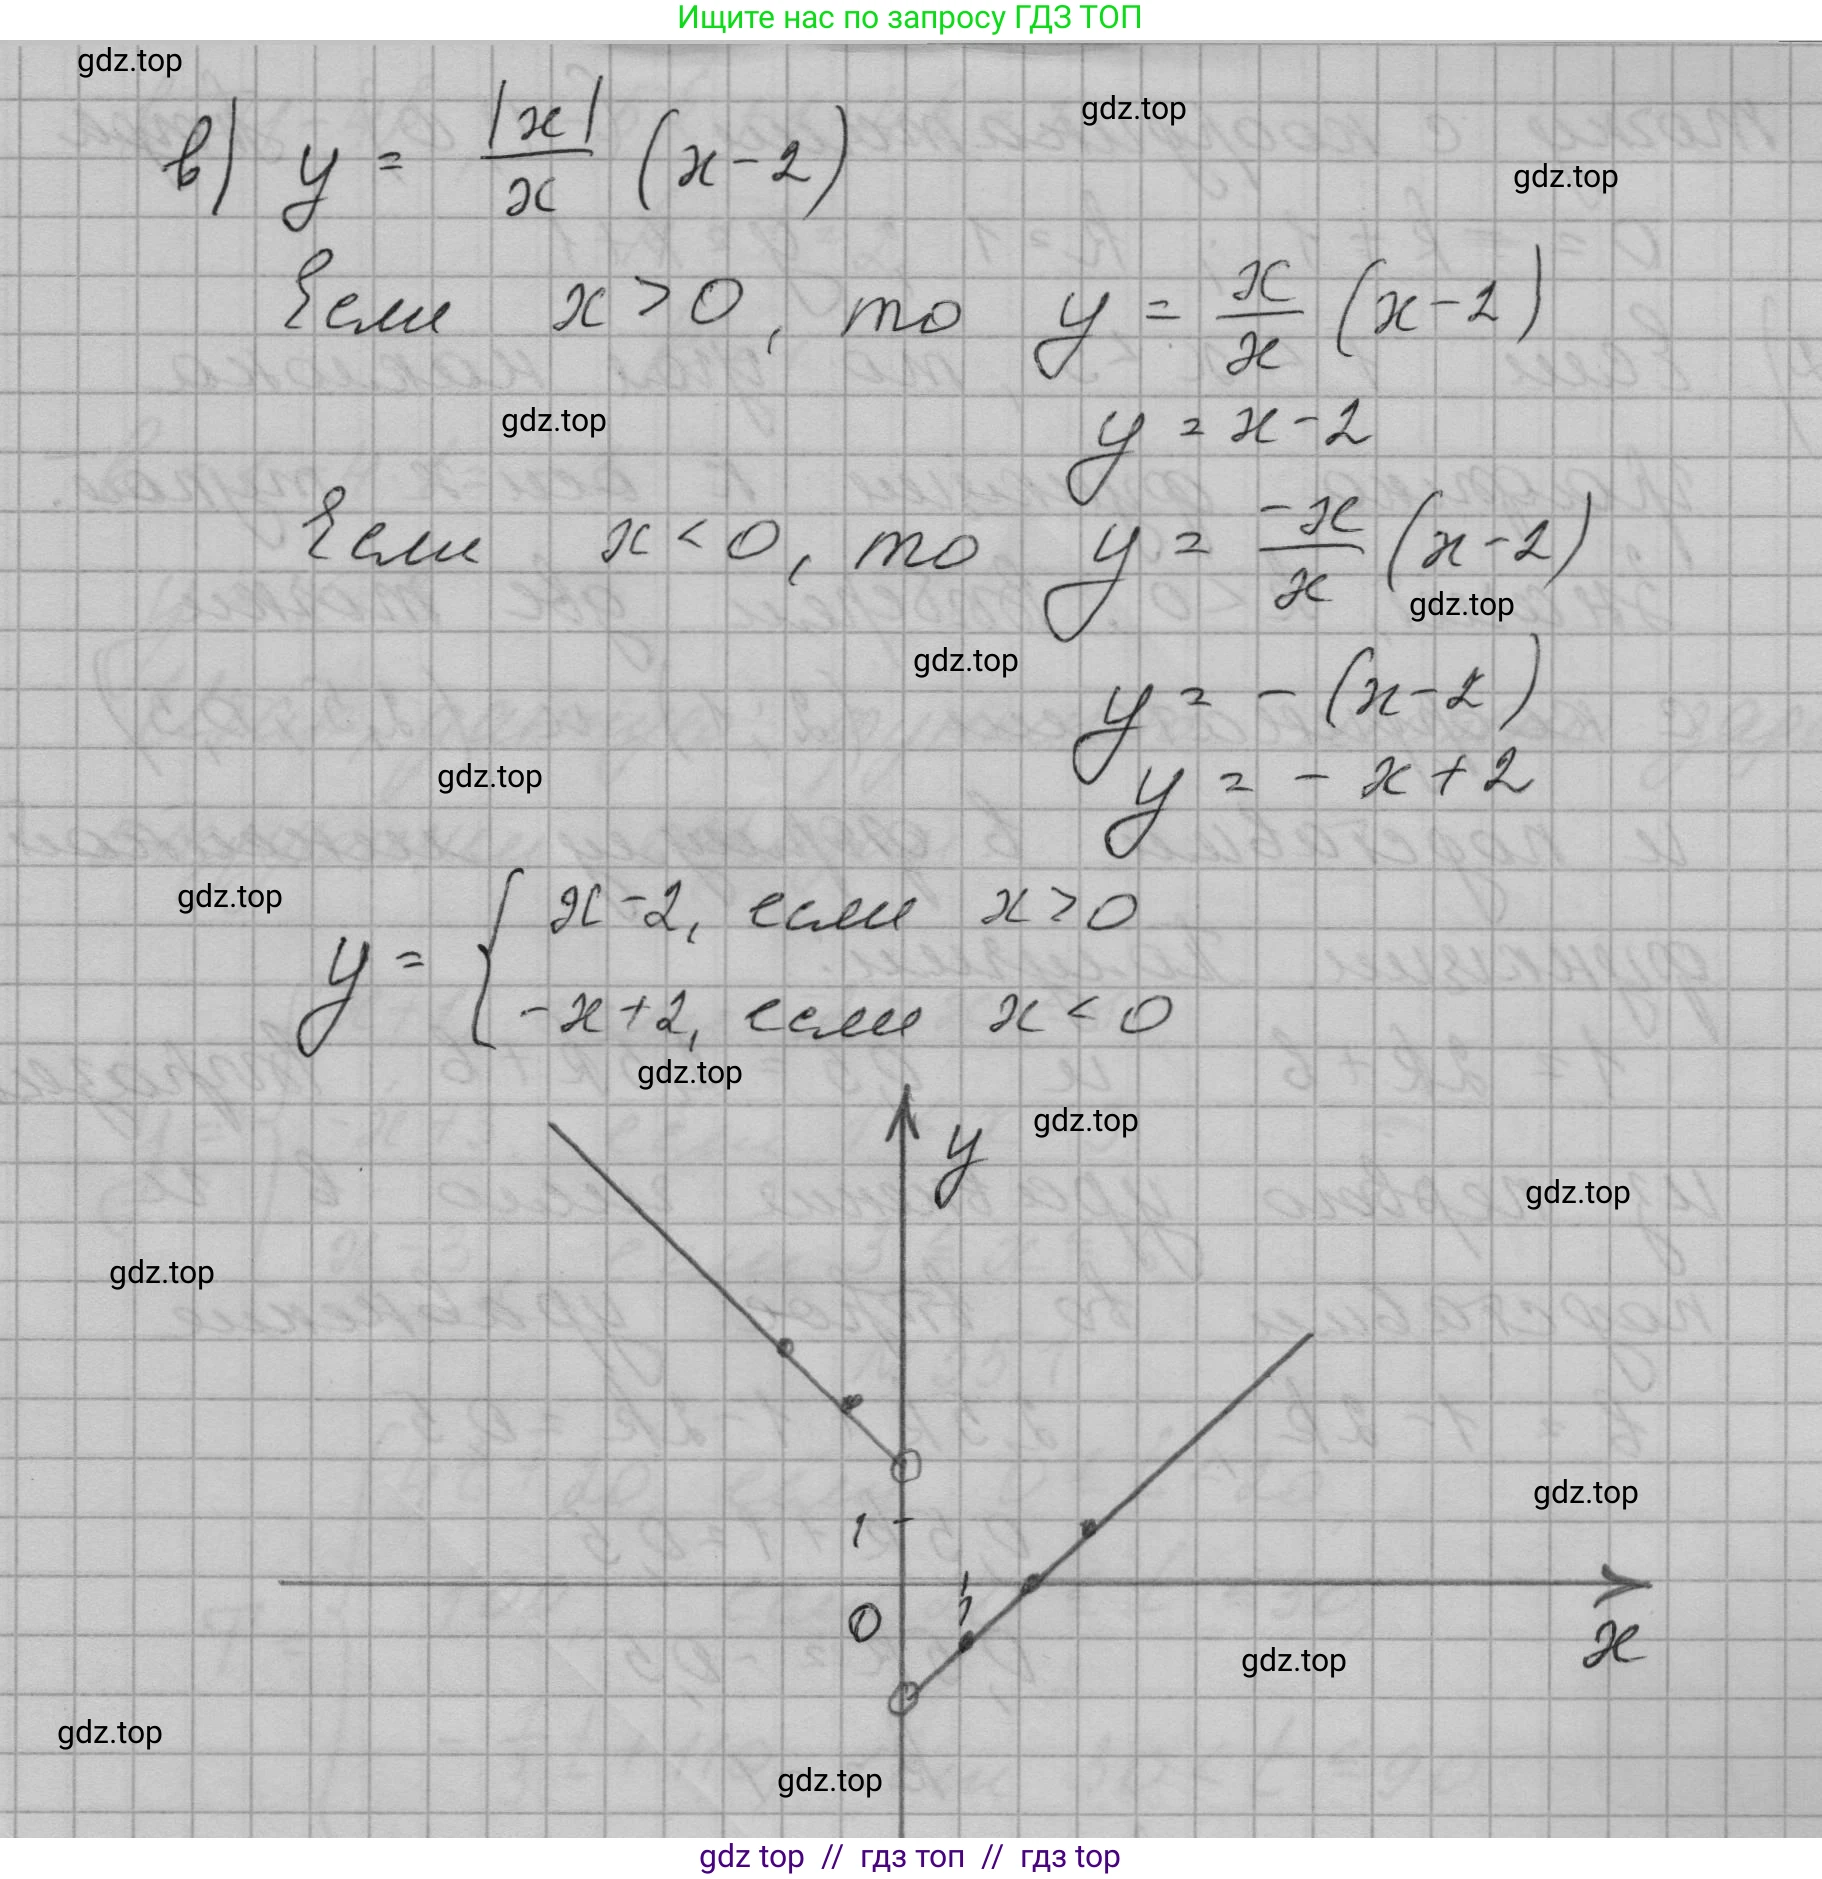 Ищите нас по запросу ГДЗ ТОП
gdz.top
gdz.top
gdz.top
в) y = |x|/x (x-2)
Если x > 0, то y = x/x (x-2)
gdz.top
y = x-2
Если x < 0, то y = -x/x (x-2)
gdz.top
gdz.top
y = - (x-2)
gdz.top
y = - x+2
gdz.top
y = { x-2, если x > 0
-x+2, если x < 0
gdz.top
gdz.top
y
gdz.top
gdz.top
gdz.top
1
0
1
x
gdz.top
gdz.top
gdz.top
gdz top // гдз топ // гдз top